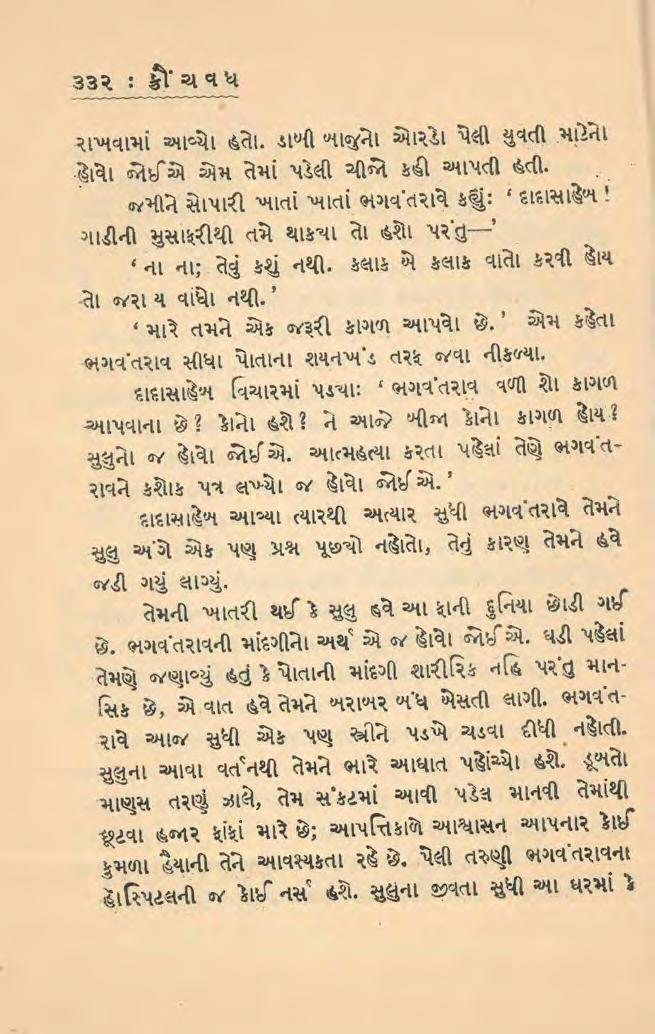 ૩૩૨ : ક્રૌંચવધ
રાખવામાં આવ્યો હતો. ડાબી બાજુનો ઓરડો પેલી યુવતી માટેનો
હોવો જોઈએ એમ તેમાં પડેલી ચીજો કહી આપતી હતી.
જમીને સોપારી ખાતાં ખાતાં ભગવંતરાવે કહ્યું: ‘ દાદાસાહેબ !
ગાડીની મુસાફરીથી તમે થાક્યા તો હશો પરંતુ—’
‘ ના ના; તેવું કશું નથી. કલાક બે કલાક વાતો કરવી હોય
તો જરા ય વાંધો નથી. ’
‘ મારે તમને એક જરૂરી કાગળ આપવો છે. ’ એમ કહેતા
ભગવંતરાવ સીધા પોતાના શયનખંડ તરફ જવા નીકળ્યા.
દાદાસાહેબ વિચારમાં પડ્યાઃ ‘ ભગવંતરાવ વળી શો કાગળ
આપવાના છે? કોનો હશે? ને આજે બીજા કોનો કાગળ હોય?
સુલુનો જ હોવો જોઈએ. આત્મહત્યા કરતા પહેલાં તેણે ભગવંત-
રાવને કશોક પત્ર લખ્યો જ હોવો જોઈએ. ’
દાદાસાહેબ આવ્યા ત્યારથી અત્યાર સુધી ભગવંતરાવે તેમને
સુલુ અંગે એક પણ પ્રશ્ન પૂછ્યો નહોતો, તેનું કારણ તેમને હવે
જડી ગયું લાગ્યું.
તેમની ખાતરી થઈ કે સુલુ હવે આ ફાની દુનિયા છોડી ગઈ
છે. ભગવંતરાવની માંદગીનો અર્થ એ જ હોવો જોઈએ. ઘડી પહેલાં
તેમણે જણાવ્યું હતું કે પોતાની માંદગી શારીરિક નહિ પરંતુ માન-
સિક છે, એ વાત હવે તેમને બરાબર બંધ બેસતી લાગી. ભગવંત-
રાવે આજ સુધી એક પણ સ્ત્રીને પડખે ચડવા દીધી નહોતી.
સુલુના આવા વર્તનથી તેમને ભારે આઘાત પહોંચ્યો હશે. ડૂબતો
માણસ તરણું ઝાલે, તેમ સંકટમાં આવી પડેલ માનવી તેમાંથી
છૂટવા હજાર ફાંફાં મારે છે; આપત્તિકાળે આશ્વાસન આપનાર કોઈ
કુમળા હૈયાની તેને આવશ્યકતા રહે છે. પેલી તરુણી ભગવંતરાવના
હૉસ્પિટલની જ કોઈ નર્સ હશે. સુલુના જીવતા સુધી આ ઘરમાં કે